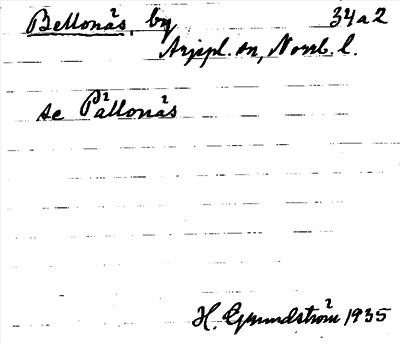 Bellonås, by 34a2
Arjepl. sn, Norrb. l.
se Pallonås
H. Grundström 1935